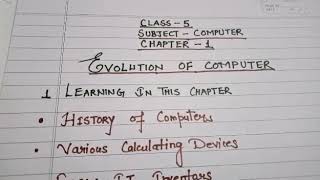 CLASS-5
SUBJECT-COMPUTER
CHAPTER-1
EVOLUTION OF COMPUTER
1 LEARNING IN THIS CHAPTER
• HISTORY of Computers
• Various Calculating Devices
I.T Inventors